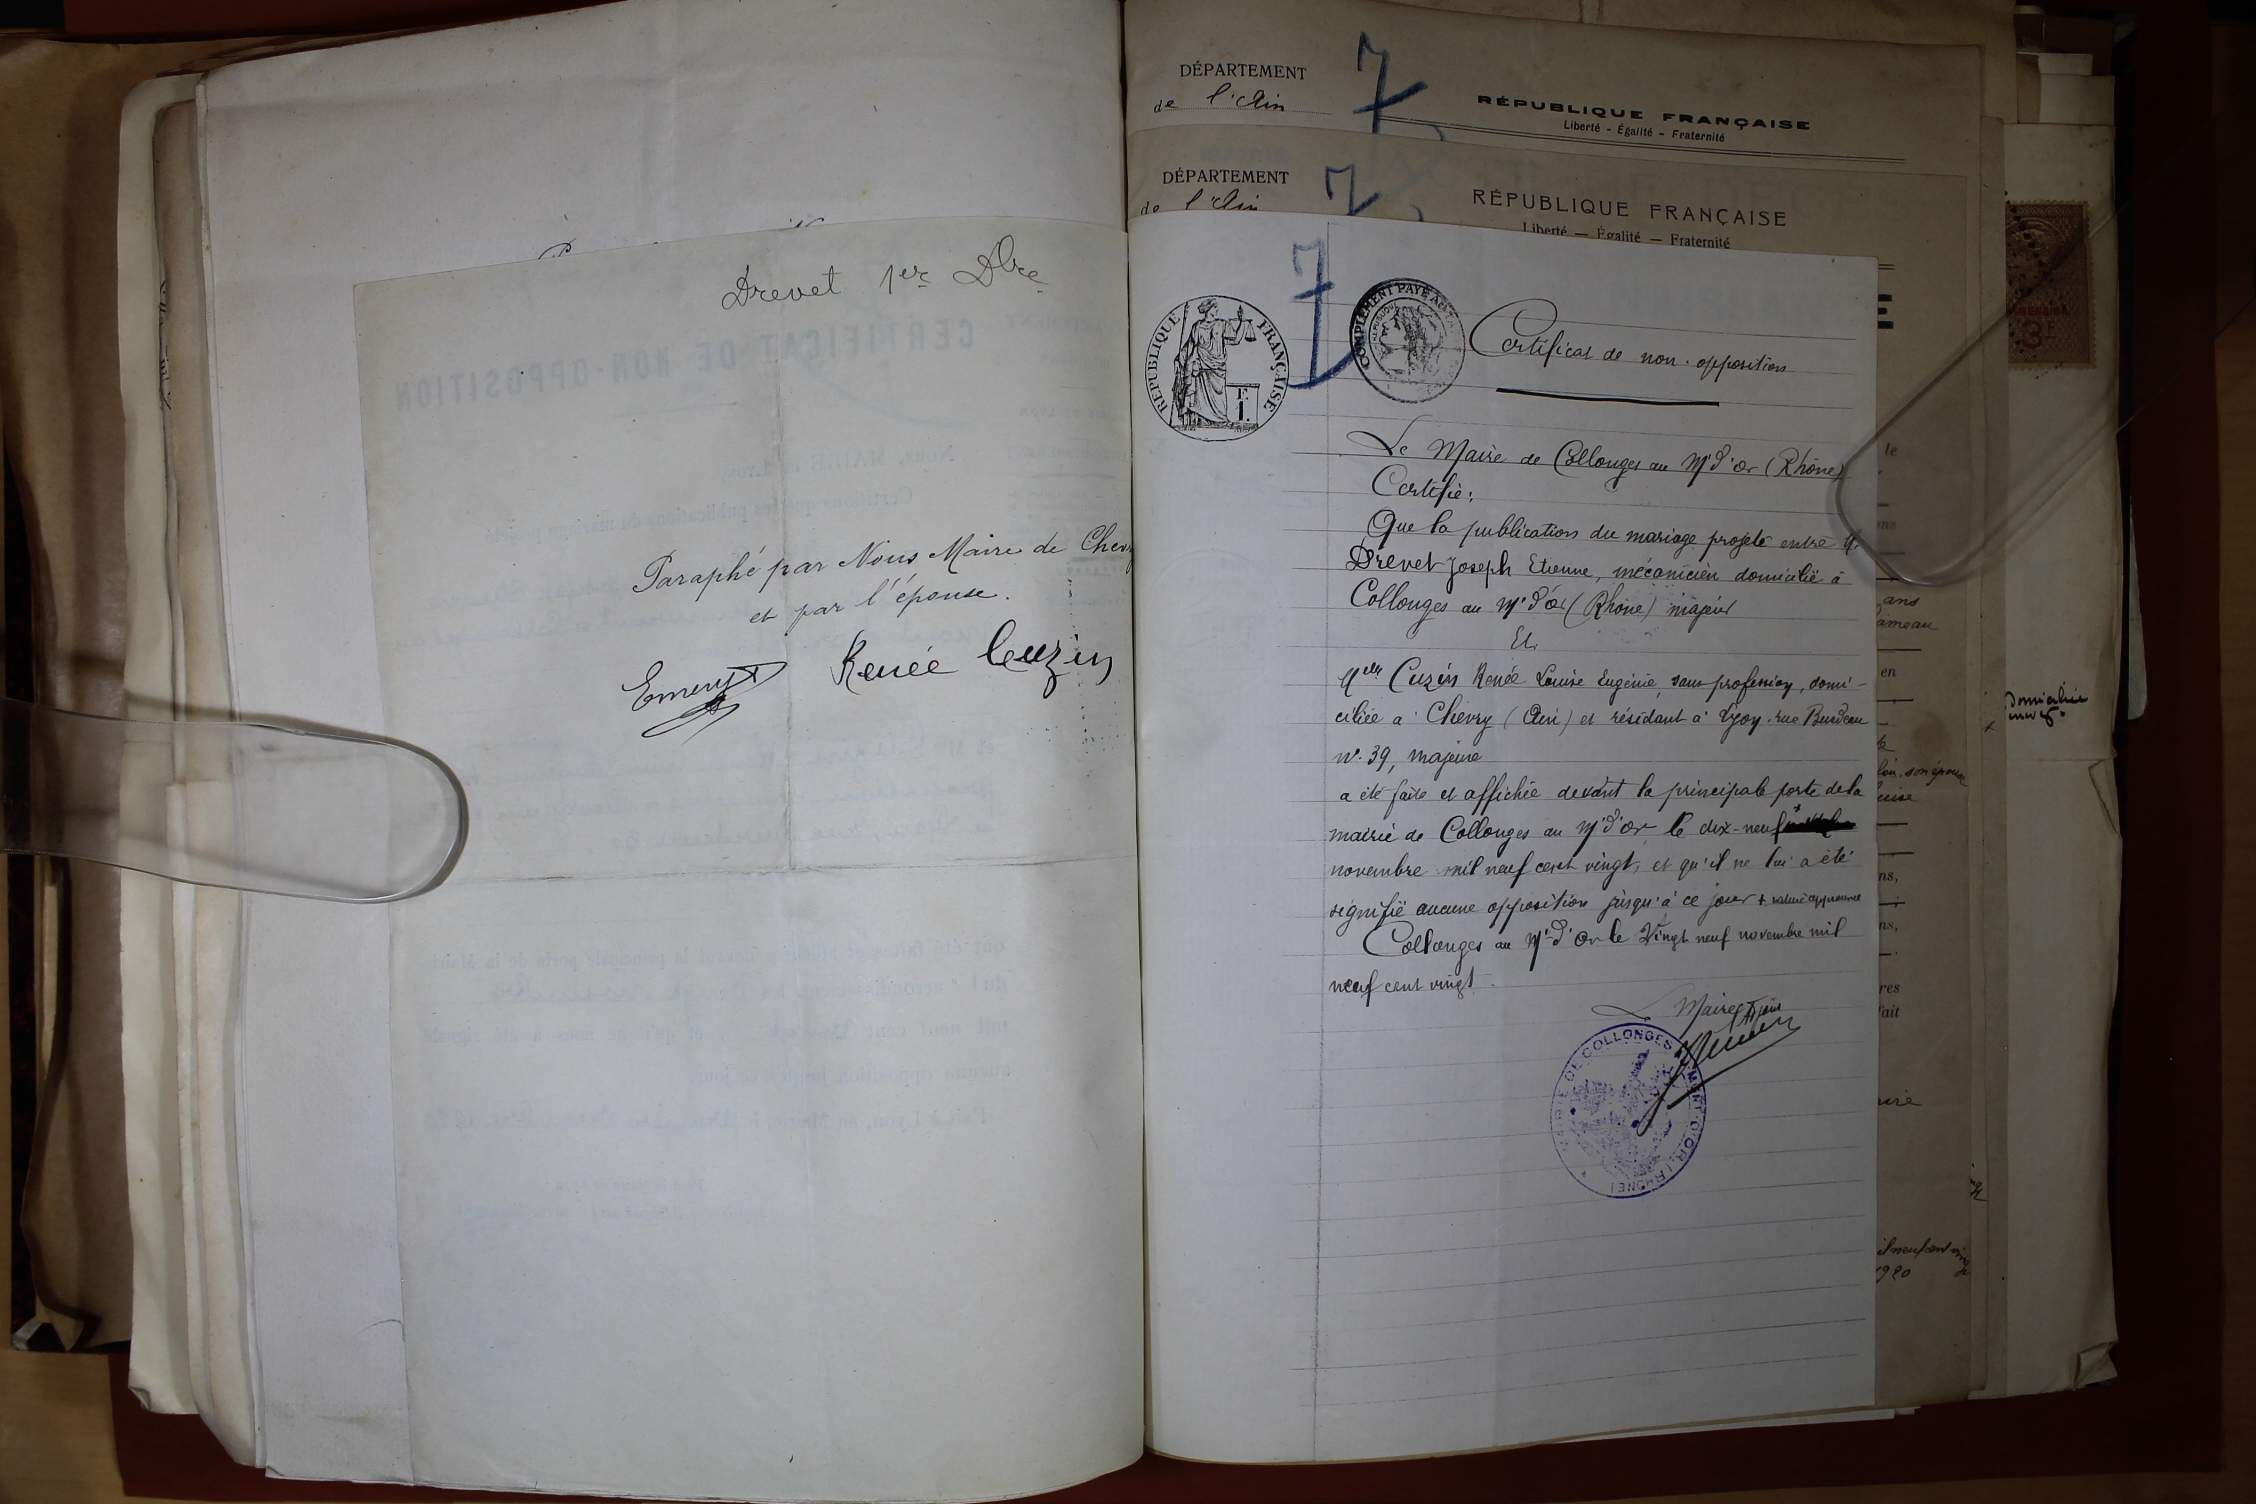 Drevet 1er Dbre
Paraphé par Nous Maire de Chevry
et par l'épouse.
Emery Renée Cuzin
DÉPARTEMENT
de l'Ain
7
RÉPUBLIQUE FRANÇAISE
Liberté - Égalité - Fraternité
DÉPARTEMENT
de l'Ain
7
RÉPUBLIQUE FRANÇAISE
Liberté — Égalité — Fraternité
7
RÉPUBLIQUE FRANÇAISE
F.
1.
COMPLÉMENT PAYÉ
Certificat de non-opposition
Le Maire de Collonges au Mt d'or (Rhône)
Certifie:
Que la publication du mariage projeté entre M.
Drevet Joseph Etienne, mécanicien domicilié à
Collonges au Mt d'or (Rhône) majeur
Et,
Melle Cuzin Renée Louise Eugénie, sans profession, domi-
ciliée à Chevry (Ain) et résidant à Lyon, rue Burdeau
n° 39, majeure
a été faite et affichée devant la principale porte de la
mairie de Collonges au Mt d'or le dix-neuf +
novembre mil neuf cent vingt, et qu'il ne lui a été
signifié aucune opposition jusqu'à ce jour +
Collonges au Mt d'Or le vingt neuf novembre mil
neuf cent vingt.
Le Maire
MAIRIE DE COLLONGES AU MONT-D'OR (RHÔNE)
ans
en
son épouse
ans,
1920
Domicilié
3F